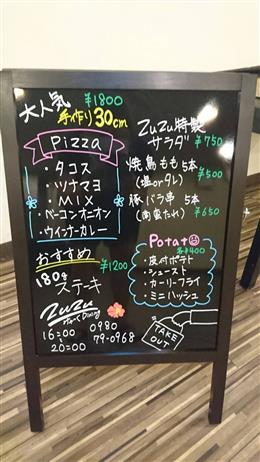 大人気 ¥1800
手作り30cm
Pizza
・タコス
・ツナマヨ
・MIX
・ベーコンオニオン
・ウインナーカレー
おすすめ
180g ¥1200
ステーキ
ZuZu
Dining
16:00
~
20:00
0980
79-0968
ZuZu特製
サラダ ¥750
焼鳥もも5本
(塩orタレ) ¥500
豚バラ串5本
¥650
Potato
各¥400
・皮付ポテト
・シュースト
・カーリーフライ
・ミニハッシュ
TAKE
OUT